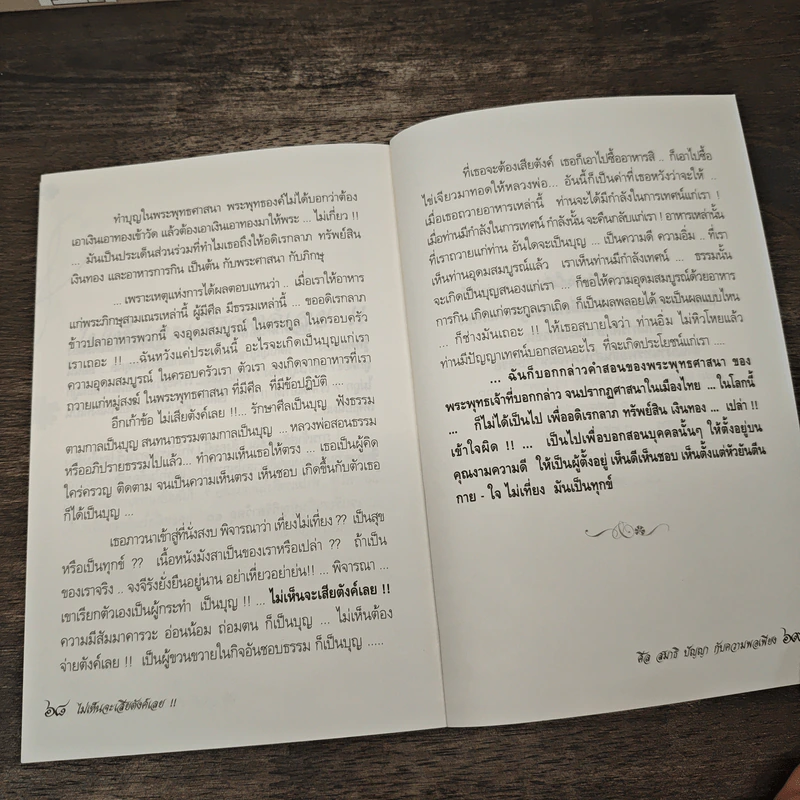 ทำบุญในพระพุทธศาสนา พระพุทธองค์ไม่ได้บอกว่าต้อง
เอาเงินเอาทองเข้าวัด แล้วต้องเอาเงินเอาทองมาให้พระ ... ไม่เกี่ยว !!
... มันเป็นประเด็นส่วนร่วมที่ทำไมเธอถึงให้อดิเรกลาภ ทรัพย์สิน
เงินทอง และอาหารการกิน เป็นต้น กับพระศาสนา กับภิกษุ
... เพราะเหตุแห่งการได้ผลตอบแทนว่า .. เมื่อเราให้อาหาร
แก่พระภิกษุสามเณรเหล่านี้ ผู้มีศีล มีธรรมเหล่านี้ ... ขออดิเรกลาภ
ข้าวปลาอาหารพวกนี้ จงอุดมสมบูรณ์ ในตระกูล ในครอบครัว
เราเถอะ !! ...ฉันหวังแค่ประเด็นนี้ อะไรจะเกิดเป็นบุญแก่เรา
ความอุดมสมบูรณ์ ในครอบครัวเรา ตัวเรา จงเกิดจากอาหารที่เรา
ถวายแก่หมู่สงฆ์ ในพระพุทธศาสนา ที่มีศีล ที่มีข้อปฏิบัติ ....
อีกเก้าข้อ ไม่เสียตังค์เลย !!... รักษาศีลเป็นบุญ ฟังธรรม
ตามกาลเป็นบุญ สนทนาธรรมตามกาลเป็นบุญ ... หลวงพ่อสอนธรรม
หรืออภิปรายธรรมไปแล้ว... ทำความเห็นให้ตรง ... เธอเป็นผู้คิด
ใคร่ครวญ ติดตาม จนเป็นความเห็นตรง เห็นชอบ เกิดขึ้นกับตัวเธอ
ก็ได้เป็นบุญ ...
เธอภาวนาเข้าสู่ที่นั่งสงบ พิจารณาว่า เที่ยงไม่เที่ยง ?? เป็นสุข
หรือเป็นทุกข์ ?? เนื้อหนังมังสาเป็นของเราหรือเปล่า ?? ถ้าเป็น
ของเราจริง .. จงจีรังยั่งยืนอยู่นาน อย่าเหี่ยวอย่าย่น!! ... พิจารณา ...
เขาเรียกตัวเองเป็นผู้กระทำ เป็นบุญ !! ... ไม่เห็นจะเสียตังค์เลย !!
ความมีสัมมาคารวะ อ่อนน้อม ถ่อมตน ก็เป็นบุญ ... ไม่เห็นต้อง
จ่ายตังค์เลย !! เป็นผู้ขวนขวายในกิจอันชอบธรรม ก็เป็นบุญ .....
๖๘ ไม่เห็นจะเสียตังค์เลย !!
ที่เธอจะต้องเสียตังค์ เธอก็เอาไปซื้ออาหารสิ .. ก็เอาไปซื้อ
ไข่เจียวมาทอดให้หลวงพ่อ... อันนี้ก็เป็นค่าที่เธอหวังว่าจะให้ ..
เมื่อเธอถวายอาหารเหล่านี้ ท่านจะได้มีกำลังในการเทศน์แก่เรา !
เมื่อท่านมีกำลังในการเทศน์ กำลังนั้น จะคืนกลับแก่เรา ! อาหารเหล่านั้น
ที่เราถวายแก่ท่าน อันใดจะเป็นบุญ ... เป็นความดี ความอิ่ม .. ที่เรา
เห็นท่านอุดมสมบูรณ์แล้ว เราเห็นท่านมีกำลังเทศน์ ... ธรรมนั้น
จะเกิดเป็นบุญสนองแก่เรา ... ก็ขอให้ความอุดมสมบูรณ์ด้วยอาหาร
การกิน เกิดแก่ตระกูลเราเถิด ก็เป็นผลพลอยได้ จะเป็นผลแบบไหน
... ก็ช่างมันเถอะ !! ให้เธอสบายใจว่า ท่านอิ่ม ไม่หิวโหยแล้ว
ท่านมีปัญญาเทศน์บอกสอนอะไร ที่จะเกิดประโยชน์แก่เรา ....
... ฉันก็บอกกล่าวคำสอนของพระพุทธศาสนา ของ
พระพุทธเจ้าที่บอกกล่าว จนปรากฏศาสนาในเมืองไทย ...ในโลกนี้
... ก็ไม่ได้เป็นไป เพื่ออดิเรกลาภ ทรัพย์สิน เงินทอง ... เปล่า !!
เข้าใจผิด !! ... เป็นไปเพื่อบอกสอนบุคคลนั้นๆ ให้ตั้งอยู่บน
คุณงามความดี ให้เป็นผู้ตั้งอยู่ เห็นดีเห็นชอบ เห็นตั้งแต่หัวยันตีน
กาย - ใจ ไม่เที่ยง มันเป็นทุกข์
ศีล สมาธิ ปัญญา กับความพอเพียง ๖๙